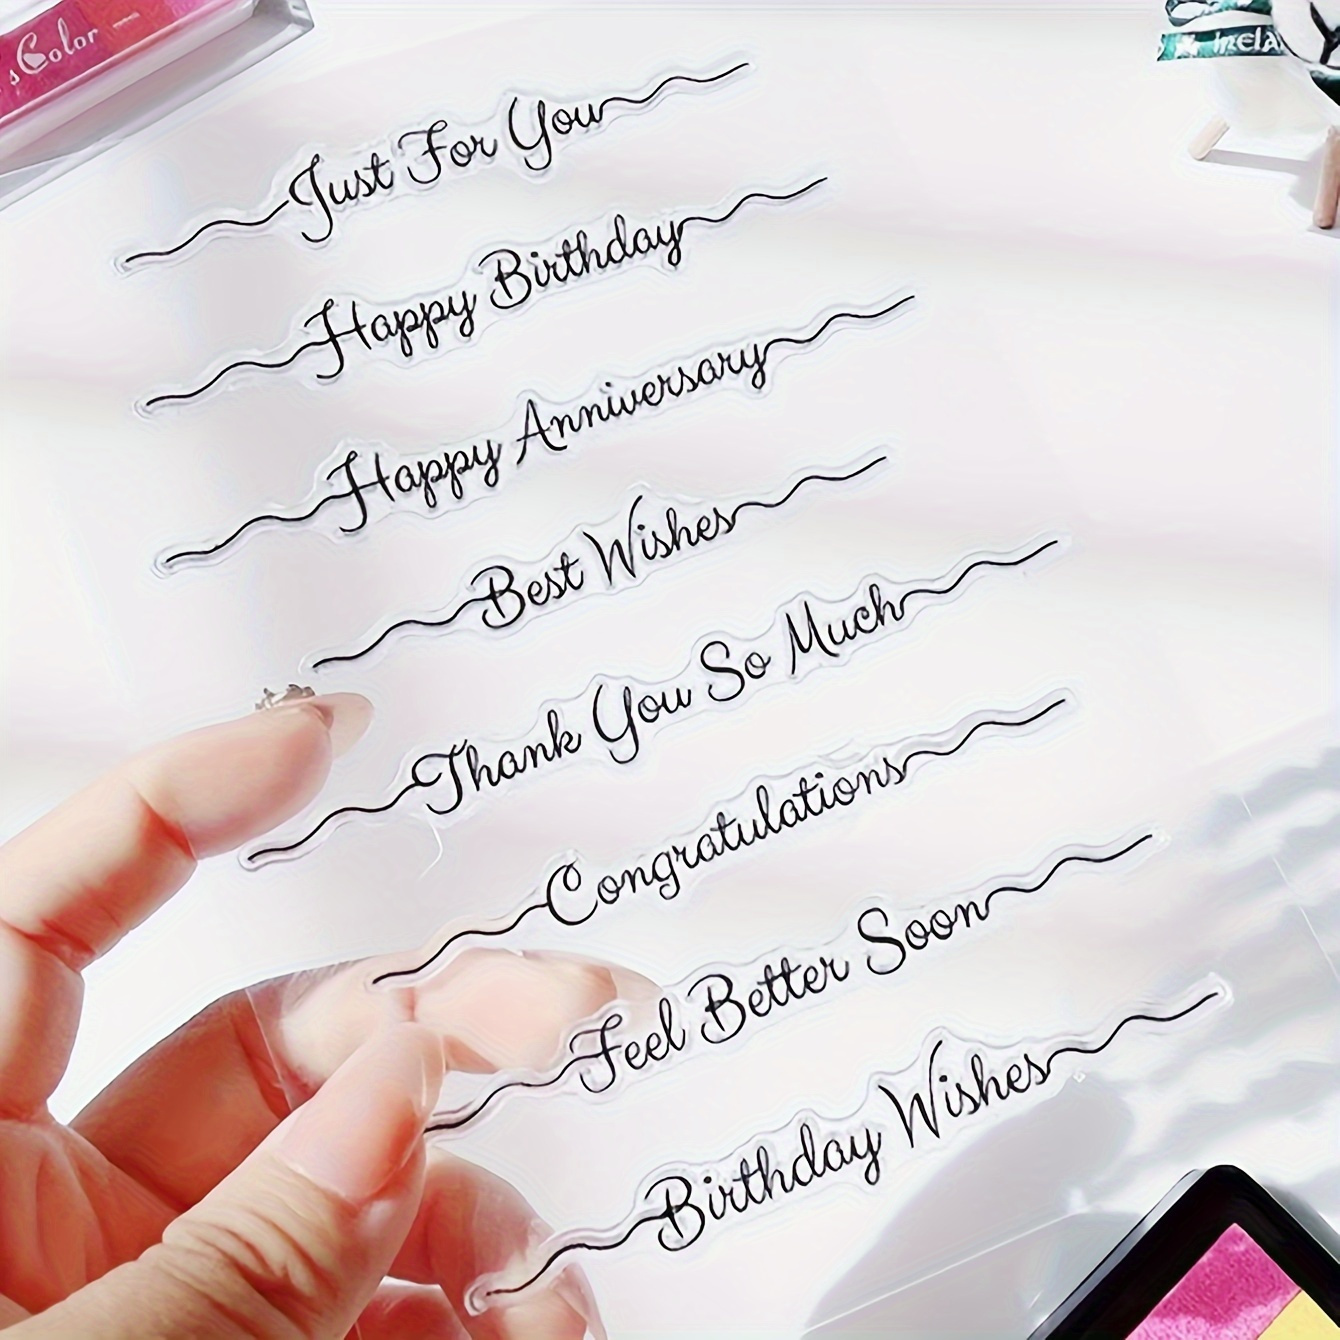 sColor
Just For You
Happy Birthday
Happy Anniversary
Best Wishes
Thank You So Much
Congratulations
Feel Better Soon
Birthday Wishes